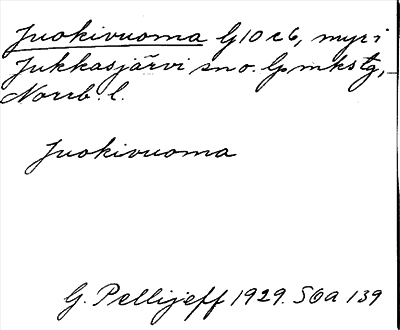 Juokivuoma G10c6, myr i
Jukkasjärvi sn o. lpmkstg,
Norrb. l.
Juokivuoma
G. Pellijeff 1929. SOA 139